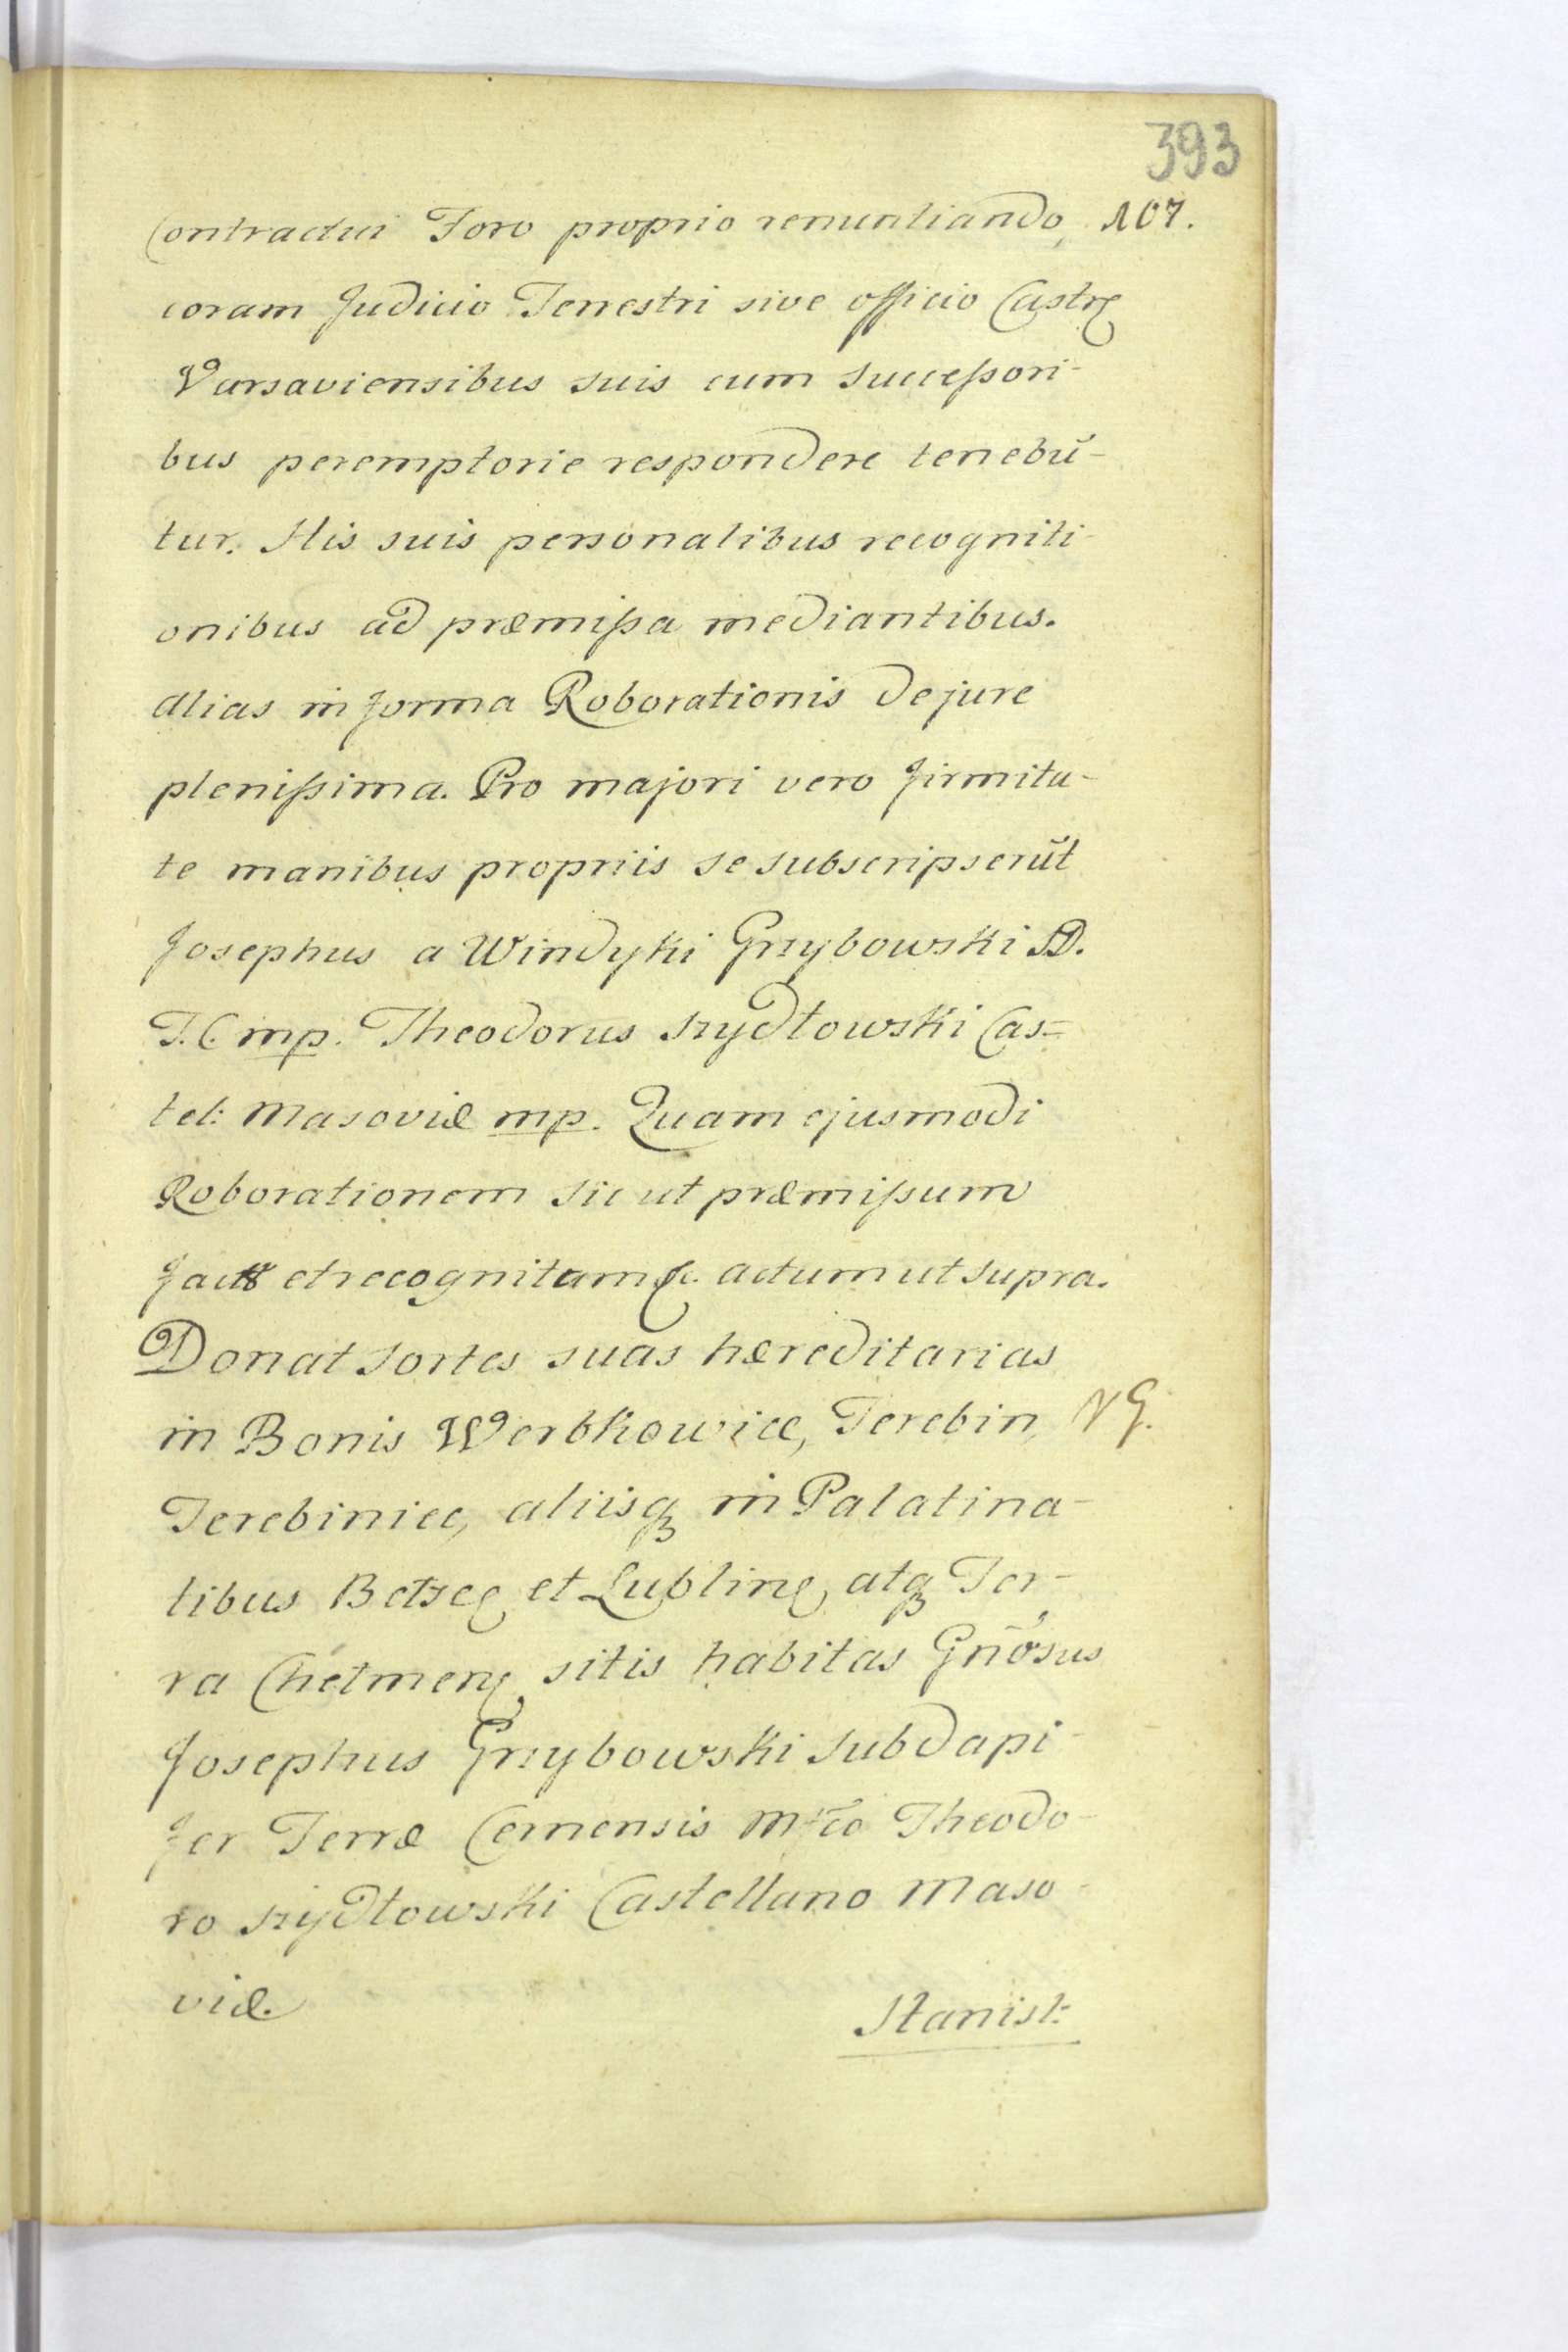 393
Contractui Foro proprio renuntiando, 107.
coram Judicio Terrestri sive officio Castrę
Varsaviensibus suis cum Successori-
bus peremptorie respondere tenebũ-
tur. His suis personalibus recogniti-
onibus ad præmissa mediantibus.
alias in forma Roborationis de jure
plenissima. Pro majori vero firmita-
te manibus propriis se subscripserũt
Josephus a Windyki Grzybowski SD.
T. C. mp. Theodorus Szydłowski Cas=
tel: Masoviæ mp. Quam ejusmodi
Roborationem sic ut præmissum
et recognitam &c. actum ut supra.
Donat sortes suas hæreditarias
in Bonis Werbkowice, Terebin,
Terebiniec, aliisq in Palatina-
tibus Bełzeę et Lublinę, atq Ter-
ra Chełmenę sitis habitas Gñosus
Josephus Grzybowski Subdapi-
fer Terræ Cernensis Mfco Theodo-
ro Szydłowski Castellano Maso-
viæ.
Stanisł: